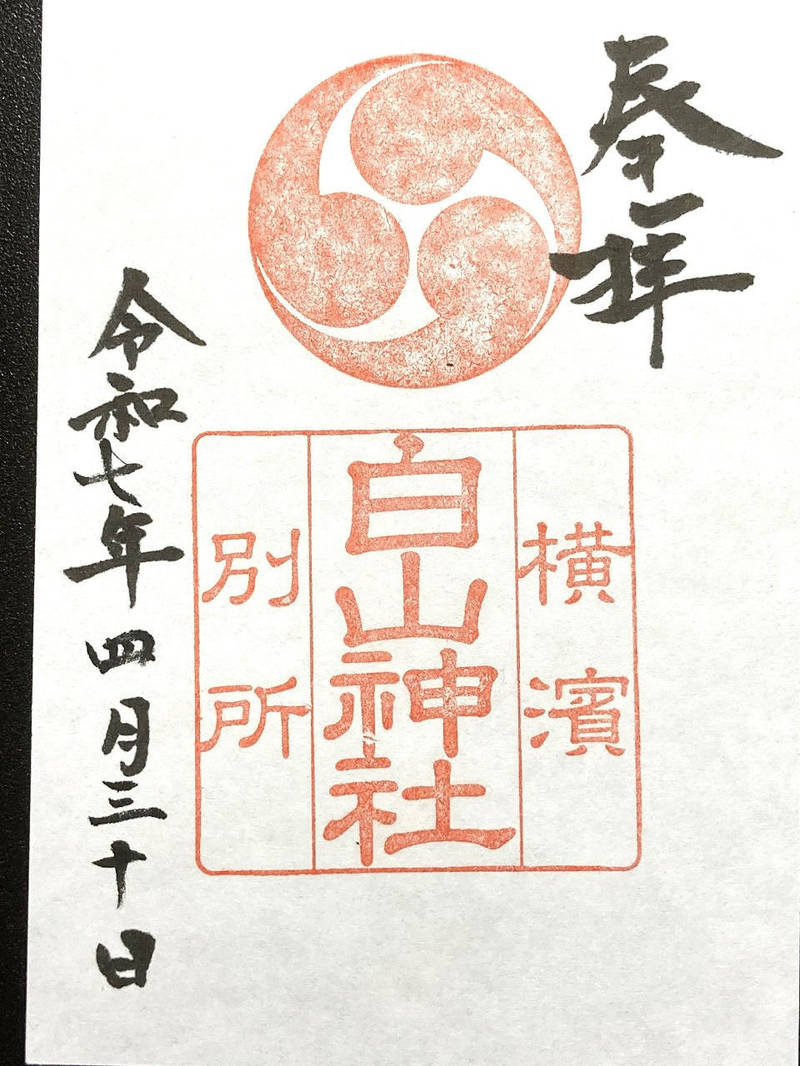 奉拝
横濱
白山神社
別所
令和七年四月三十日